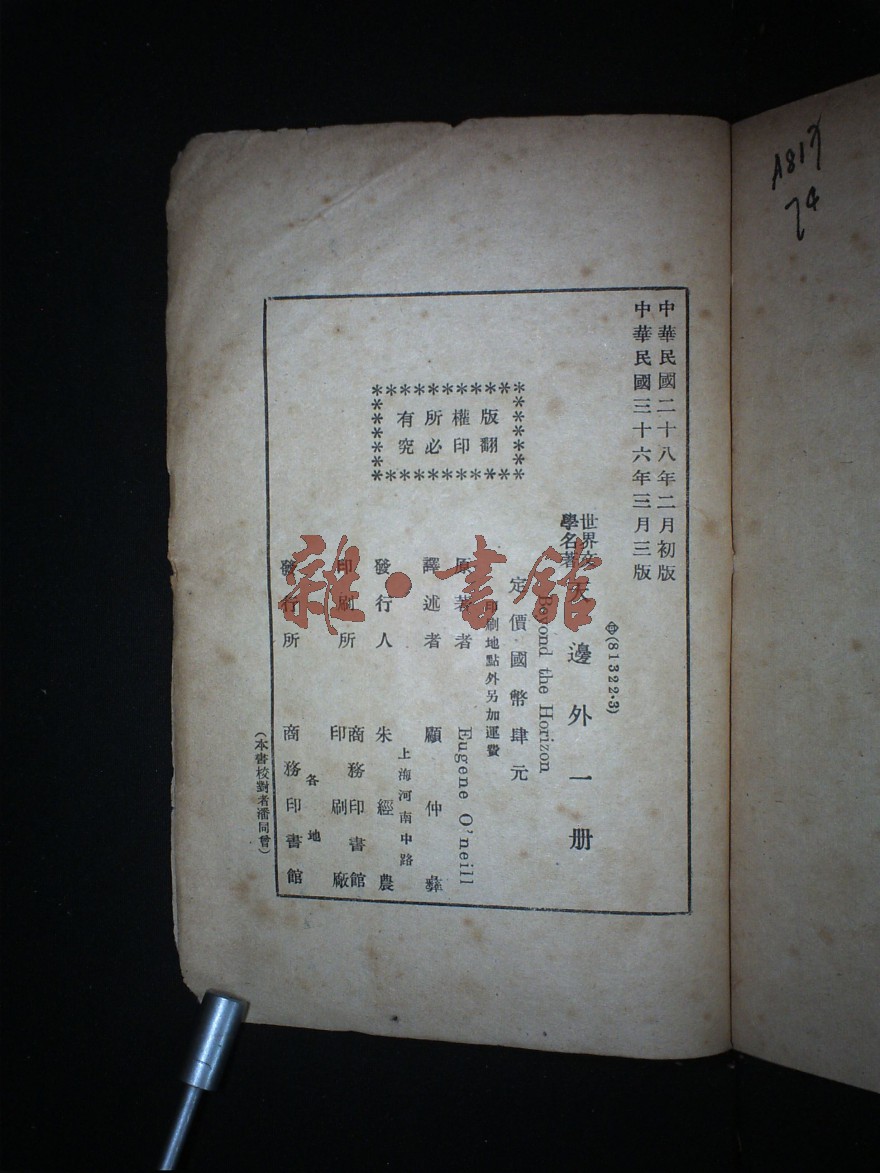 中華民國二十八年二月初版
中華民國三十六年三月三版
(81322·3)
世界文
學名著
天邊外一册
Beyond the Horizon
定價國幣肆元
印刷地點外另加運費
版權所有
翻印必究
原著者 Eugene O'neill
譯述者 顧仲彝
上海河南中路
發行人 朱經農
印刷所 商務印書館
印刷廠
各地
發行所 商務印書館
(本書校對者潘同曾)
雜·書館
A817
74